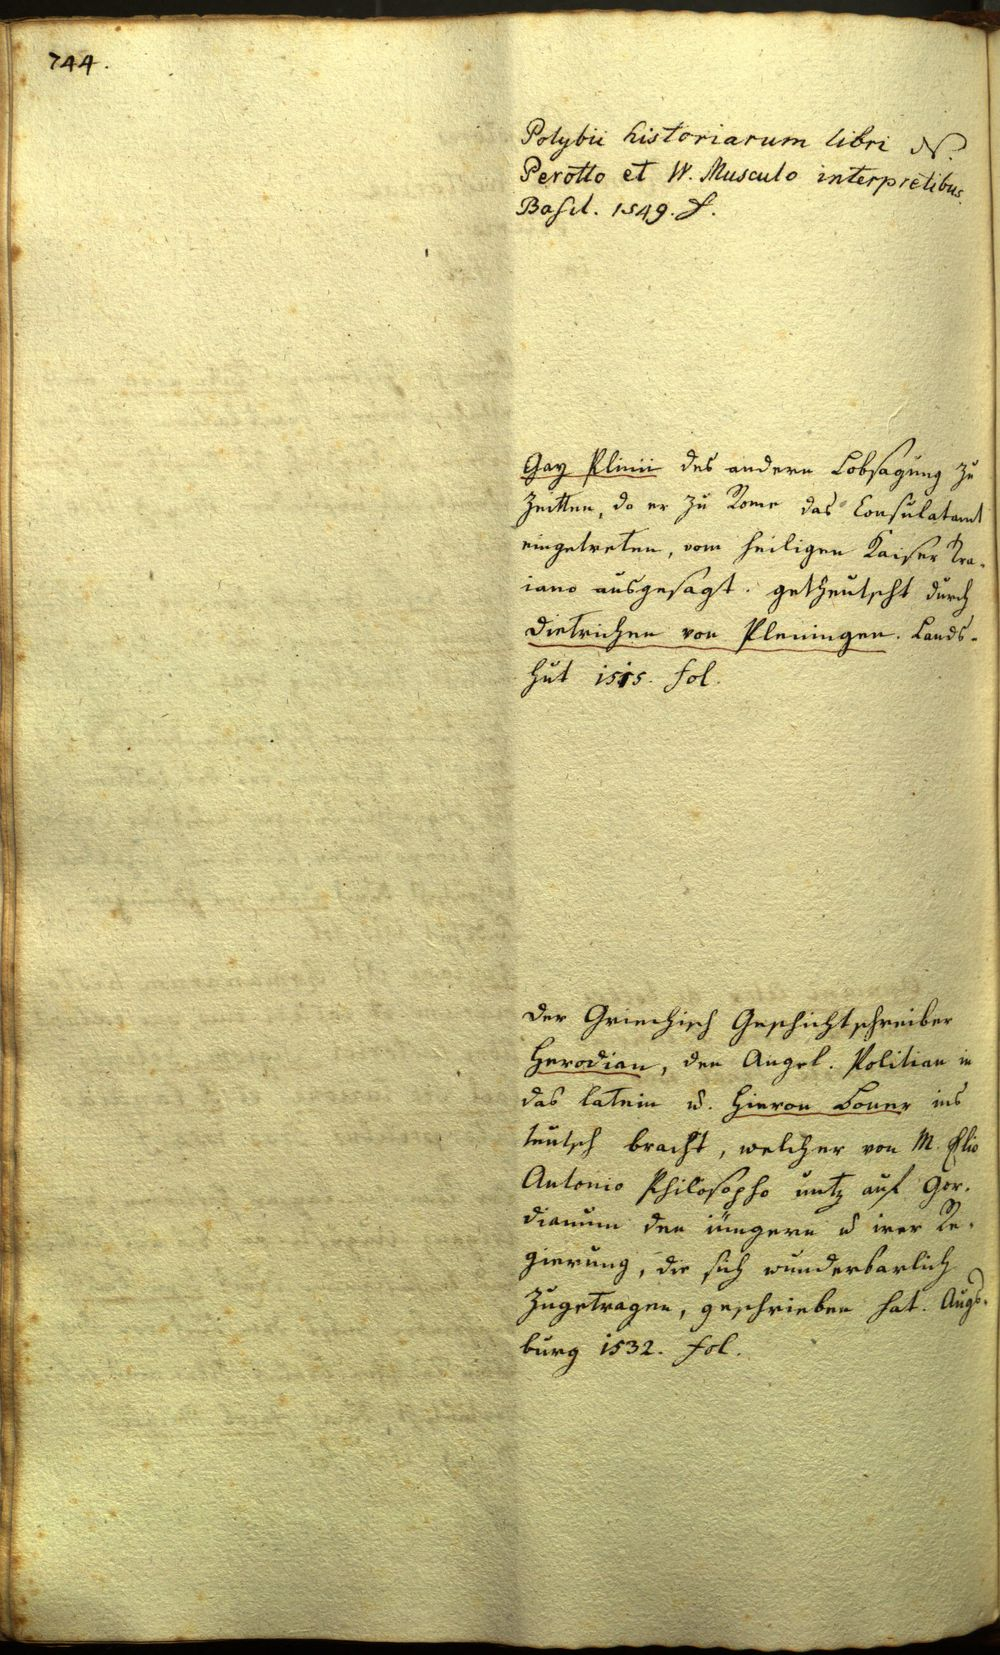 744.
Polybii historiarum libri N.
Perotto et W. Musculo interpretibus.
Basil. 1549. f.
Gay Plinii des andern Lobsagung zu
Zeitten, do er zu Rome das Consulatamt
eingetreten, vom heiligen Kaiser Tra-
iano ausgesagt. getheutscht durch
Dietrichen von Pleningen. Lands-
hut 1515. fol.
Der Griechisch Geschichtschreiber
Herodian, den Angel. Politian in
das latein u. Hieron Boner ins
teutsch bracht, welcher von M. Elio
Antonio Philosopho untz auf Gor-
dianum den iüngern u irer Re-
gierung, die sich wunderbarlich
zugetragen, geschrieben hat. Augs-
burg 1532. fol.